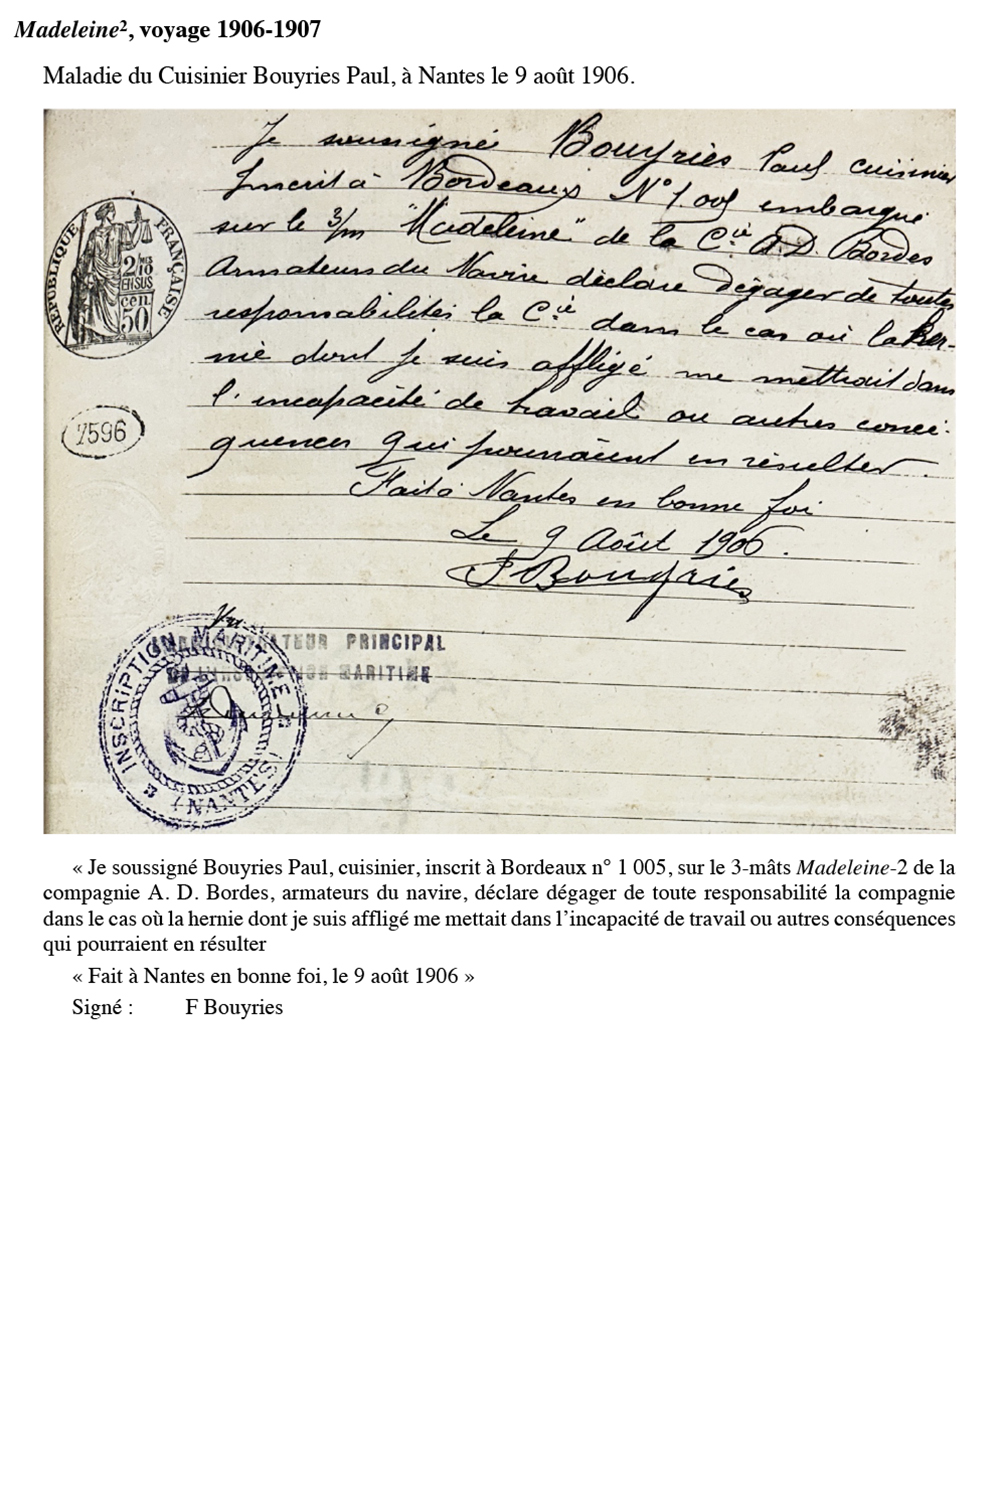 Madeleine², voyage 1906-1907
Maladie du Cuisinier Bouyries Paul, à Nantes le 9 août 1906.
Je soussigné Bouyriès Paul cuisinier
Inscrit à Bordeaux N° 1005 embarqué
sur le 3/m "Madeleine" de la Cie A.D. Bordes
Armateurs du Navire déclare dégager de toutes
responsabilités la Cie dans le cas où la Her-
nie dont je suis affligé me mettrait dans
l'incapacité de travail ou autres consé-
quences qui pourraient en résulter.
Fait à Nantes en bonne foi
Le 9 Août 1906.
Bouyriès
RÉPUBLIQUE FRANÇAISE
2/10
EN SUS
50
cen
2596
Vu
PRINCIPAL
MARITIME
INSCRIPTION MARITIME
(NANTES)
« Je soussigné Bouyries Paul, cuisinier, inscrit à Bordeaux n° 1 005, sur le 3-mâts Madeleine-2 de la
compagnie A. D. Bordes, armateurs du navire, déclare dégager de toute responsabilité la compagnie
dans le cas où la hernie dont je suis affligé me mettait dans l'incapacité de travail ou autres conséquences
qui pourraient en résulter
« Fait à Nantes en bonne foi, le 9 août 1906 »
Signé : F Bouyries